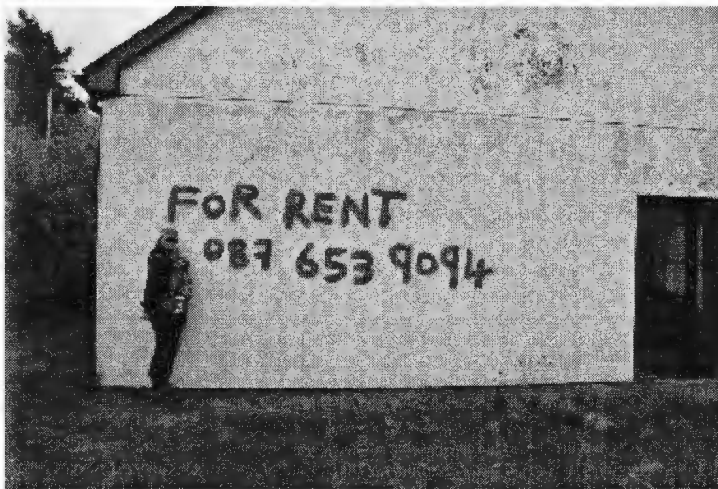 FOR RENT
087 653 9094